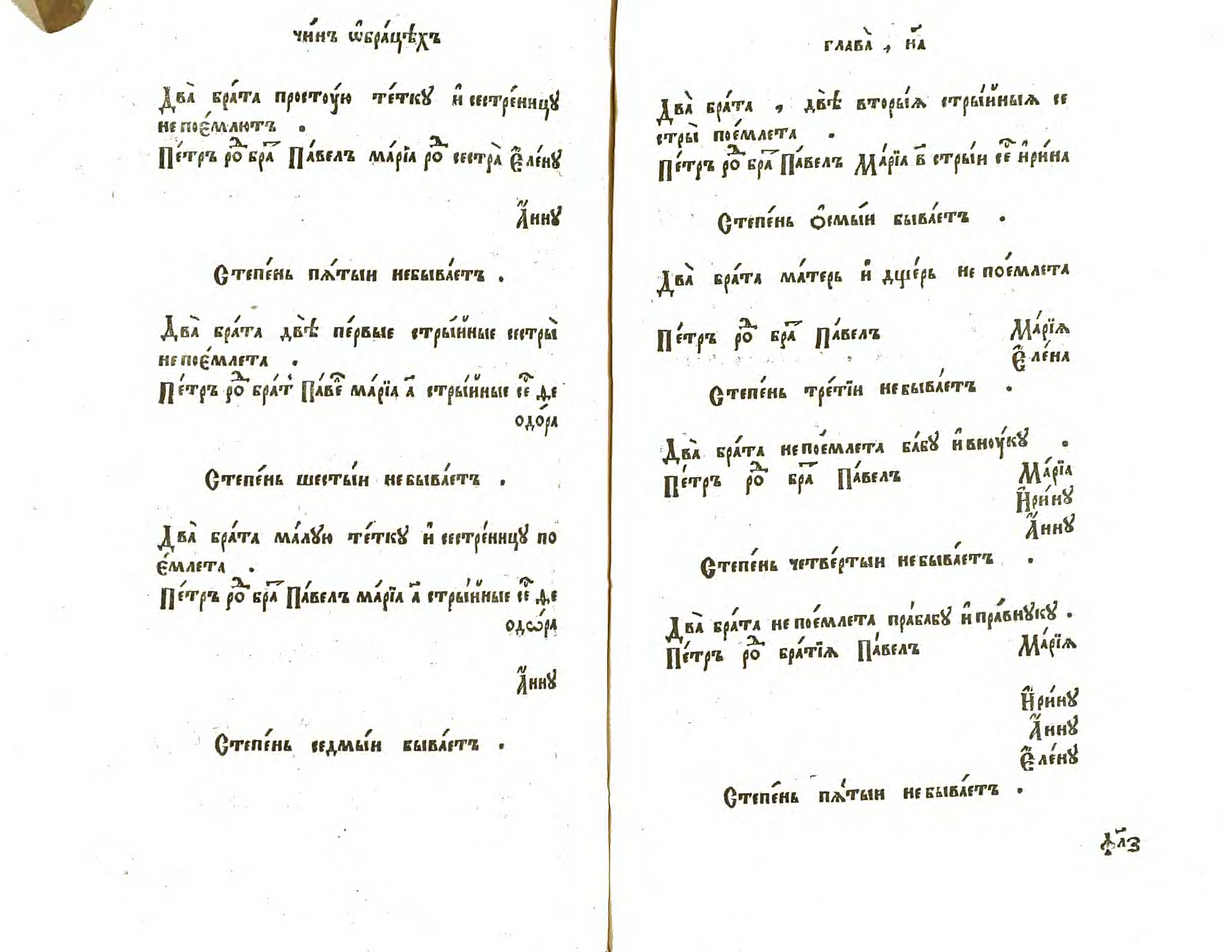 чи́нъ ѡ҆бра́цѣхъ
Два̀ бра́та просто́ую те́тку и҆ сестре́ницу
непоє́млютъ .
Пе́тръ роⷣ браⷮ Па́велъ ма́рїа роⷣ сестра̀ Є҆ле́ну
А҆́нну
Степе́нь пѧ́тыи небыва́етъ .
Два̀ бра́та двѣ̀ пе́рвые стры́йные сестры̀
непоє́млета .
Пе́тръ роⷣ бра́т Па́веⷧ ма́рїа а҃ стры́йные сеⷭ де
одо́ра
Степе́нь шесты́и небыва́етъ .
Два̀ бра́та ма́лую те́тку и҆ сестре́ницу по
є́млета .
Пе́тръ роⷣ браⷮ Па́велъ ма́рїа а҃ стры́йные сеⷭ де
одѡ́ра
А҆́нну
Степе́нь седмы́и быва́етъ .
глава̀ , н҃а
Два̀ бра́та , двѣ̀ вторы́ѧ стры́йныѧ се
стры̀ поє́млета .
Пе́тръ роⷣ браⷮ Па́велъ Ма́рїа в҃ стры́и сеⷭ и҆ри́на
Степе́нь о҆смы́и быва́етъ .
Два̀ бра́та ма́терь и҆ дще́рь не поє́млета
Пе́тръ роⷣ браⷮ Па́велъ Ма́рїѧ
Є҆ле́на
Степе́нь тре́тїи небыва́етъ .
Два̀ бра́та непоє́млета ба́бу и҆ вно́уку .
Пе́тръ роⷣ браⷮ Па́велъ Ма́рїа
И҆ри́ну
А҆́нну
Степе́нь четве́ртыи небыва́етъ .
Два̀ бра́та непоє́млета пра́бабу и҆ пра́внуку .
Пе́тръ роⷣ бра́тїѧ Па́велъ Ма́рїѧ
И҆ри́ну
А҆́нну
Є҆ле́ну
Степе́нь пѧ́тыи небыва́етъ .
ф҃лз